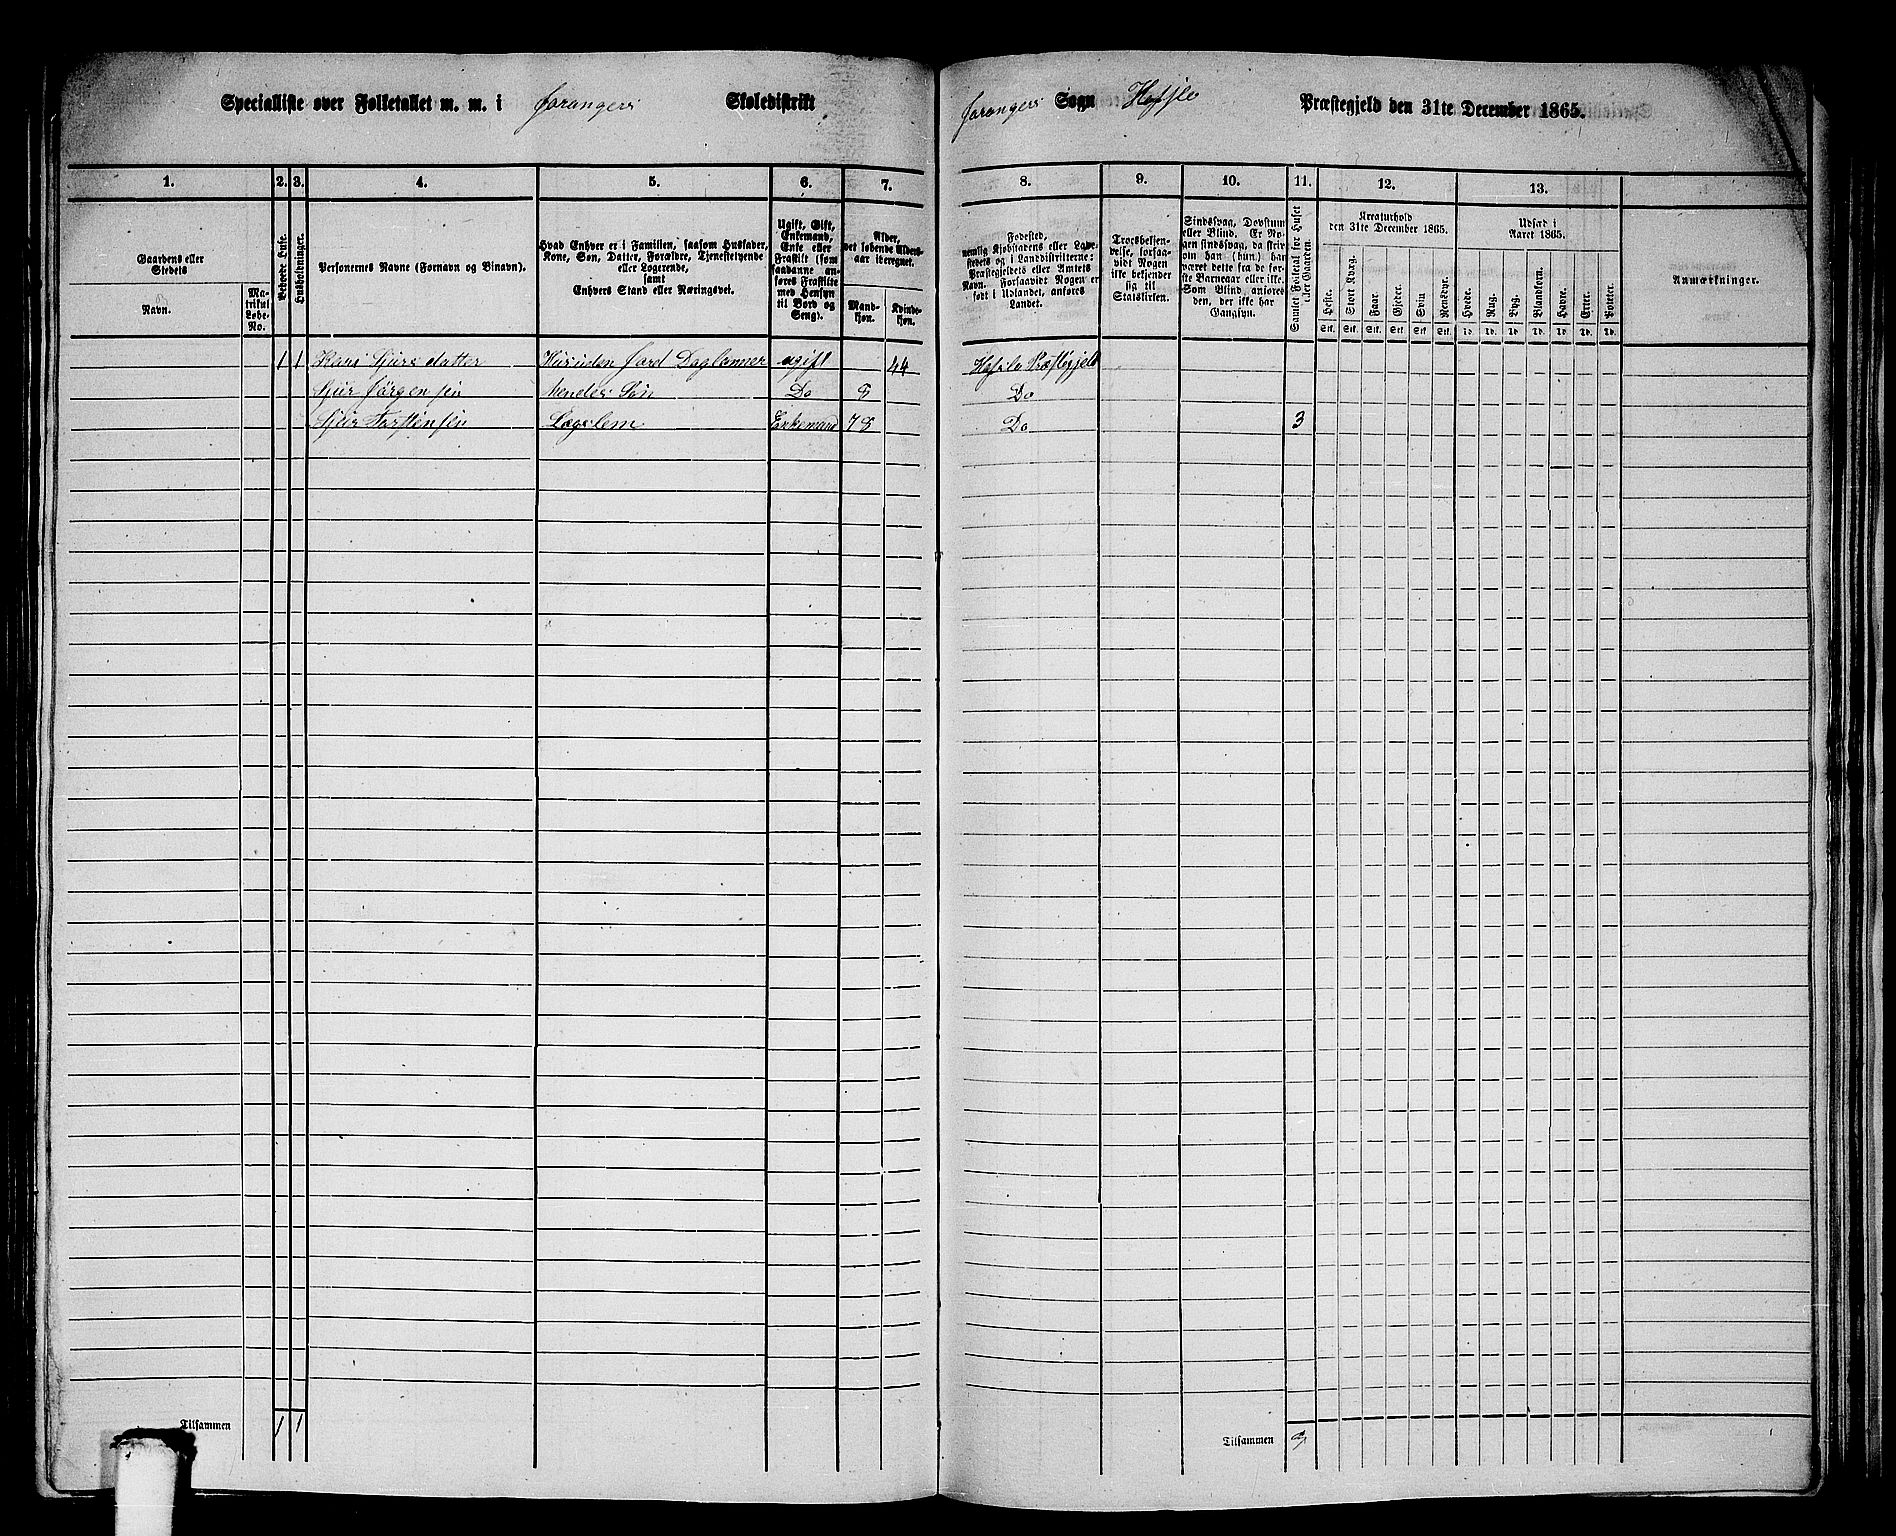 Specialliste over Folketallet m. m. i Joranger Skoledistrikt
Joranger Sogn Hafslo Præstegjeld den 31te December 1865.
1. 2. 3. 4. 5. 6. 7. 8. 9. 10. 11. 12. 13.
Gaardens eller Stedets
Navn.
Matrikul Løbe-No.
Beboede Huse.
Husholdninger.
Personernes Navne (Fornavn og Binavn).
Hvad Enhver er i Familien, saasom Husfader, Kone, Søn, Datter, Forældre, Tjenestetyende eller Logerende,
samt
Enhvers Stand eller Næringsvei.
Ugift, Gift, Enkemand, Enke eller Fraskilt (som saadanne anføres Fraskilte med Hensyn til Bord og Seng).
Alder, det løbende Alders-aar iberegnet.
Mandkøn.
Kvindekøn.
Fødested, nemlig Kjøbstadens eller Ladestedets og i Landdistrikterne: Præstegjeldets eller Amtets Navn. Forsaavidt Nogen er født i Udlandet, anføres Landet.
Trosbekjendelse, forsaavidt Nogen ikke bekjender sig til Statskirken.
Sindssvag, Døvstum eller Blind. Er Nogen sindssvag, da skrives om han (hun) har været dette fra de første Barneaar eller ikke. Som Blind, anføres den, der ikke har Gangsyn.
Samlet Folketal for Huset eller Gaarden.
Kreaturhold
den 31te December 1865.
Heste. Stort Kvæg. Faar. Gjeder. Svin Rensdyr.
Stk. Stk. Stk. Stk. Stk. Stk.
Udsæd i
Aaret 1865.
Hvede. Rug. Byg. Blandkorn. Havre. Erter. Poteter.
Td. Td. Td. Td. Td. Td. Td.
Anmærkninger.
1 1 Kari Sjursdatter Husuden Jord Daglønner ugift 44 Hafslo Præstegjeld
Sjur Jörgensen hendes Søn Do 8 Do
Sjur Torstensen Lægslem Enkemand 78 Do 3
Tilsammen 1 1
Tilsammen